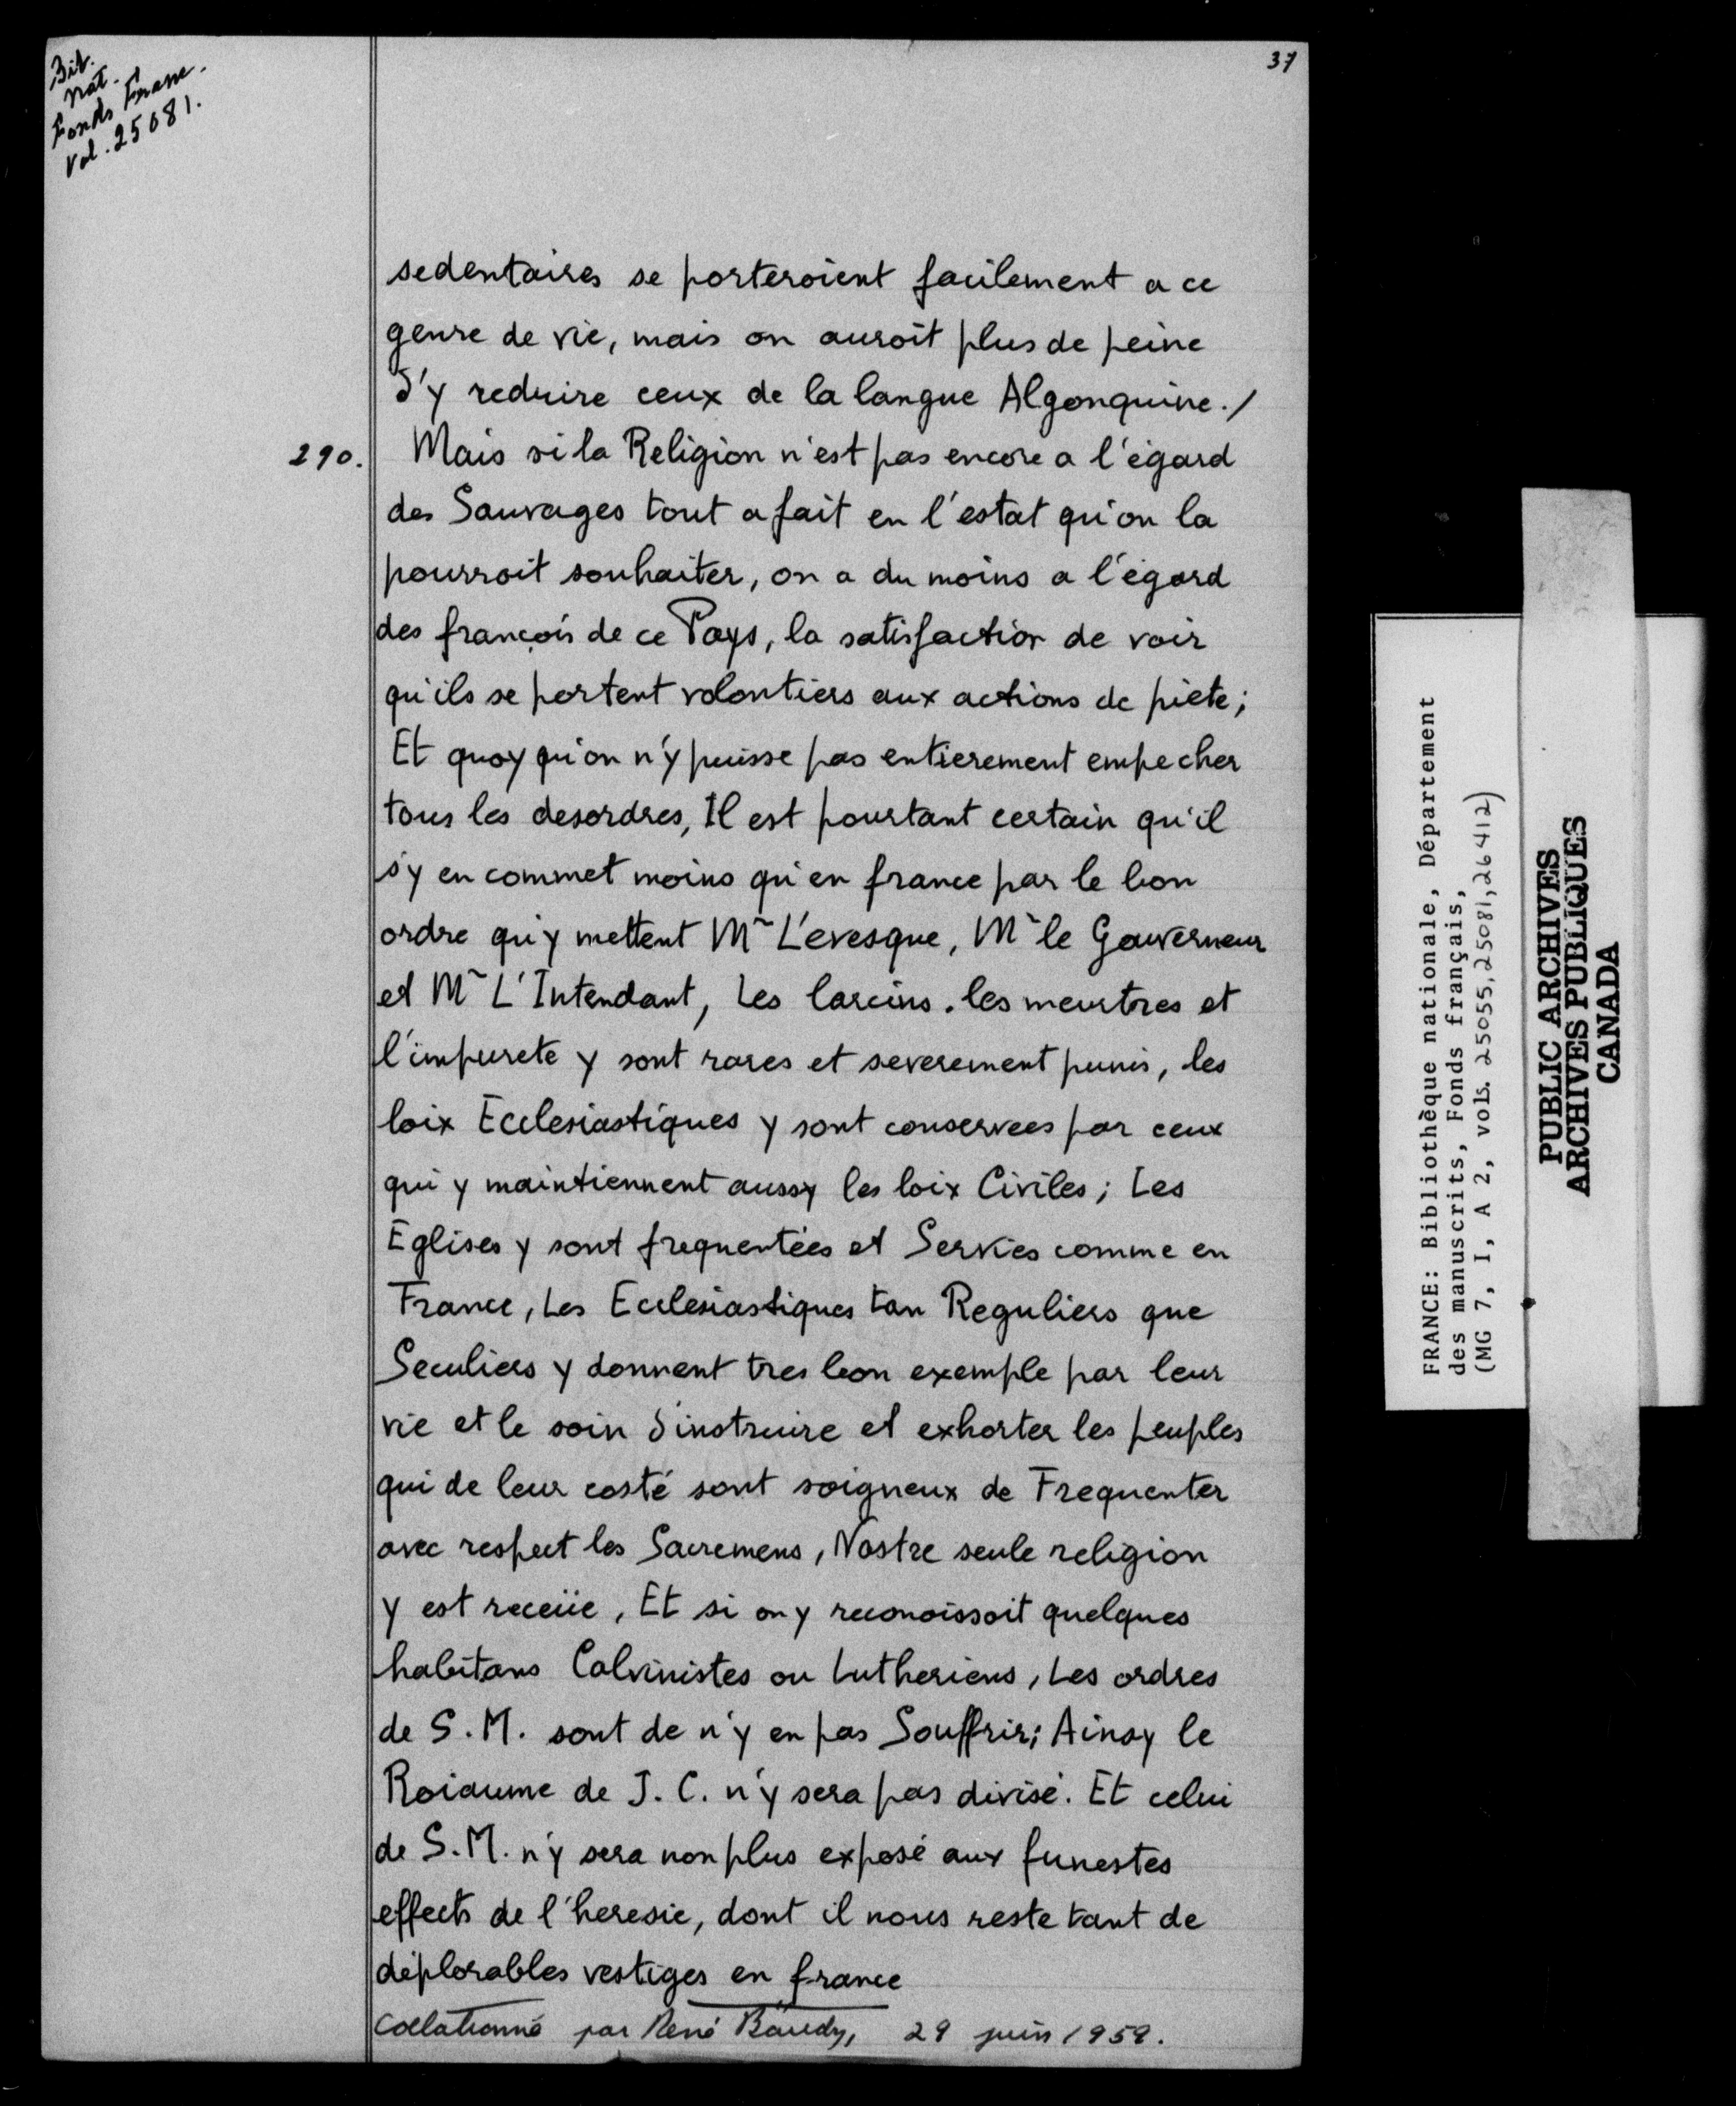 37
Bib.
Nat.
Fonds Franc.
Vol. 25081.
sedentaires se porteroient facilement a ce
genre de vie, mais on auroit plus de peine
d'y reduire ceux de la langue Algonquine./
290. Mais si la Religion n'est pas encore a l'égard
des Sauvages tout a fait en l'estat qu'on la
pourroit souhaiter, on a du moins a l'égard
des françois de ce Pays, la satisfaction de voir
qu'ils se portent volontiers aux actions de piete;
Et quoy qu'on n'y puisse pas entierement empecher
tous les desordres, Il est pourtant certain qu'il
s'y en commet moins qu'en france par le bon
ordre qu'y mettent Mr L'evesque, Mr le Gouverneur
et Mr L'Intendant, Les larcins. les meurtres et
l'impurete y sont rares et severement punis, les
loix Ecclesiastiques y sont conservees par ceux
qui y maintiennent aussy les loix Civiles; Les
Eglises y sont frequentées et Servies comme en
France, Les Ecclesiastiques tan Reguliers que
Seculiers y donnent tres bon exemple par leur
vie et le soin d'instruire et exhorter les peuples
qui de leur costé sont soigneux de Frequenter
avec respect les Sacremens, Nostre seule religion
y est receüe, Et si on y reconoissoit quelques
habitans Calvinistes ou Lutheriens, Les ordres
de S.M. sont de n'y en pas Souffrir; Ainsy le
Roiaume de J.C. n'y sera pas divisé. Et celui
de S.M. n'y sera non plus exposé aux funestes
effects de l'heresie, dont il nous reste tant de
déplorables vestiges en france
Collationné par René Baudry, 29 juin 1959.
FRANCE: Bibliothèque nationale, Département
des manuscrits, Fonds français,
(MG 7, I, A 2, vols. 25055, 25081, 26412)
PUBLIC ARCHIVES
ARCHIVES PUBLIQUES
CANADA